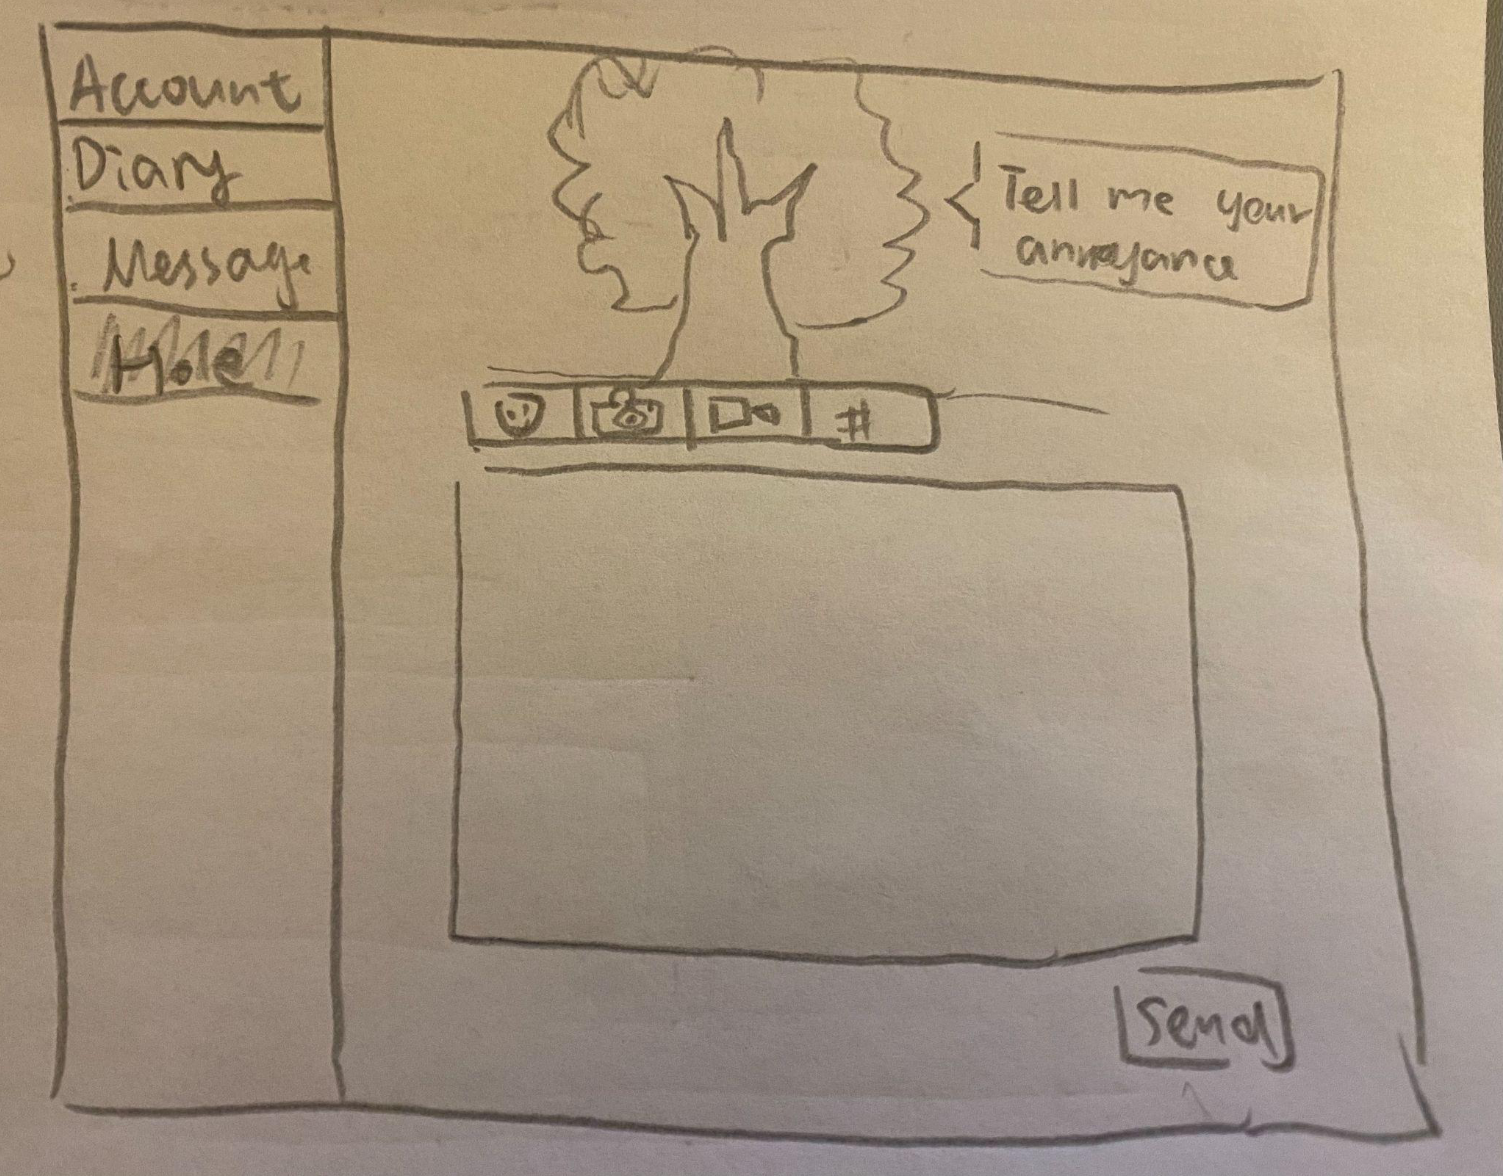 Account
Diary
Message
Hole
Tell me your
annoyance
#
Send